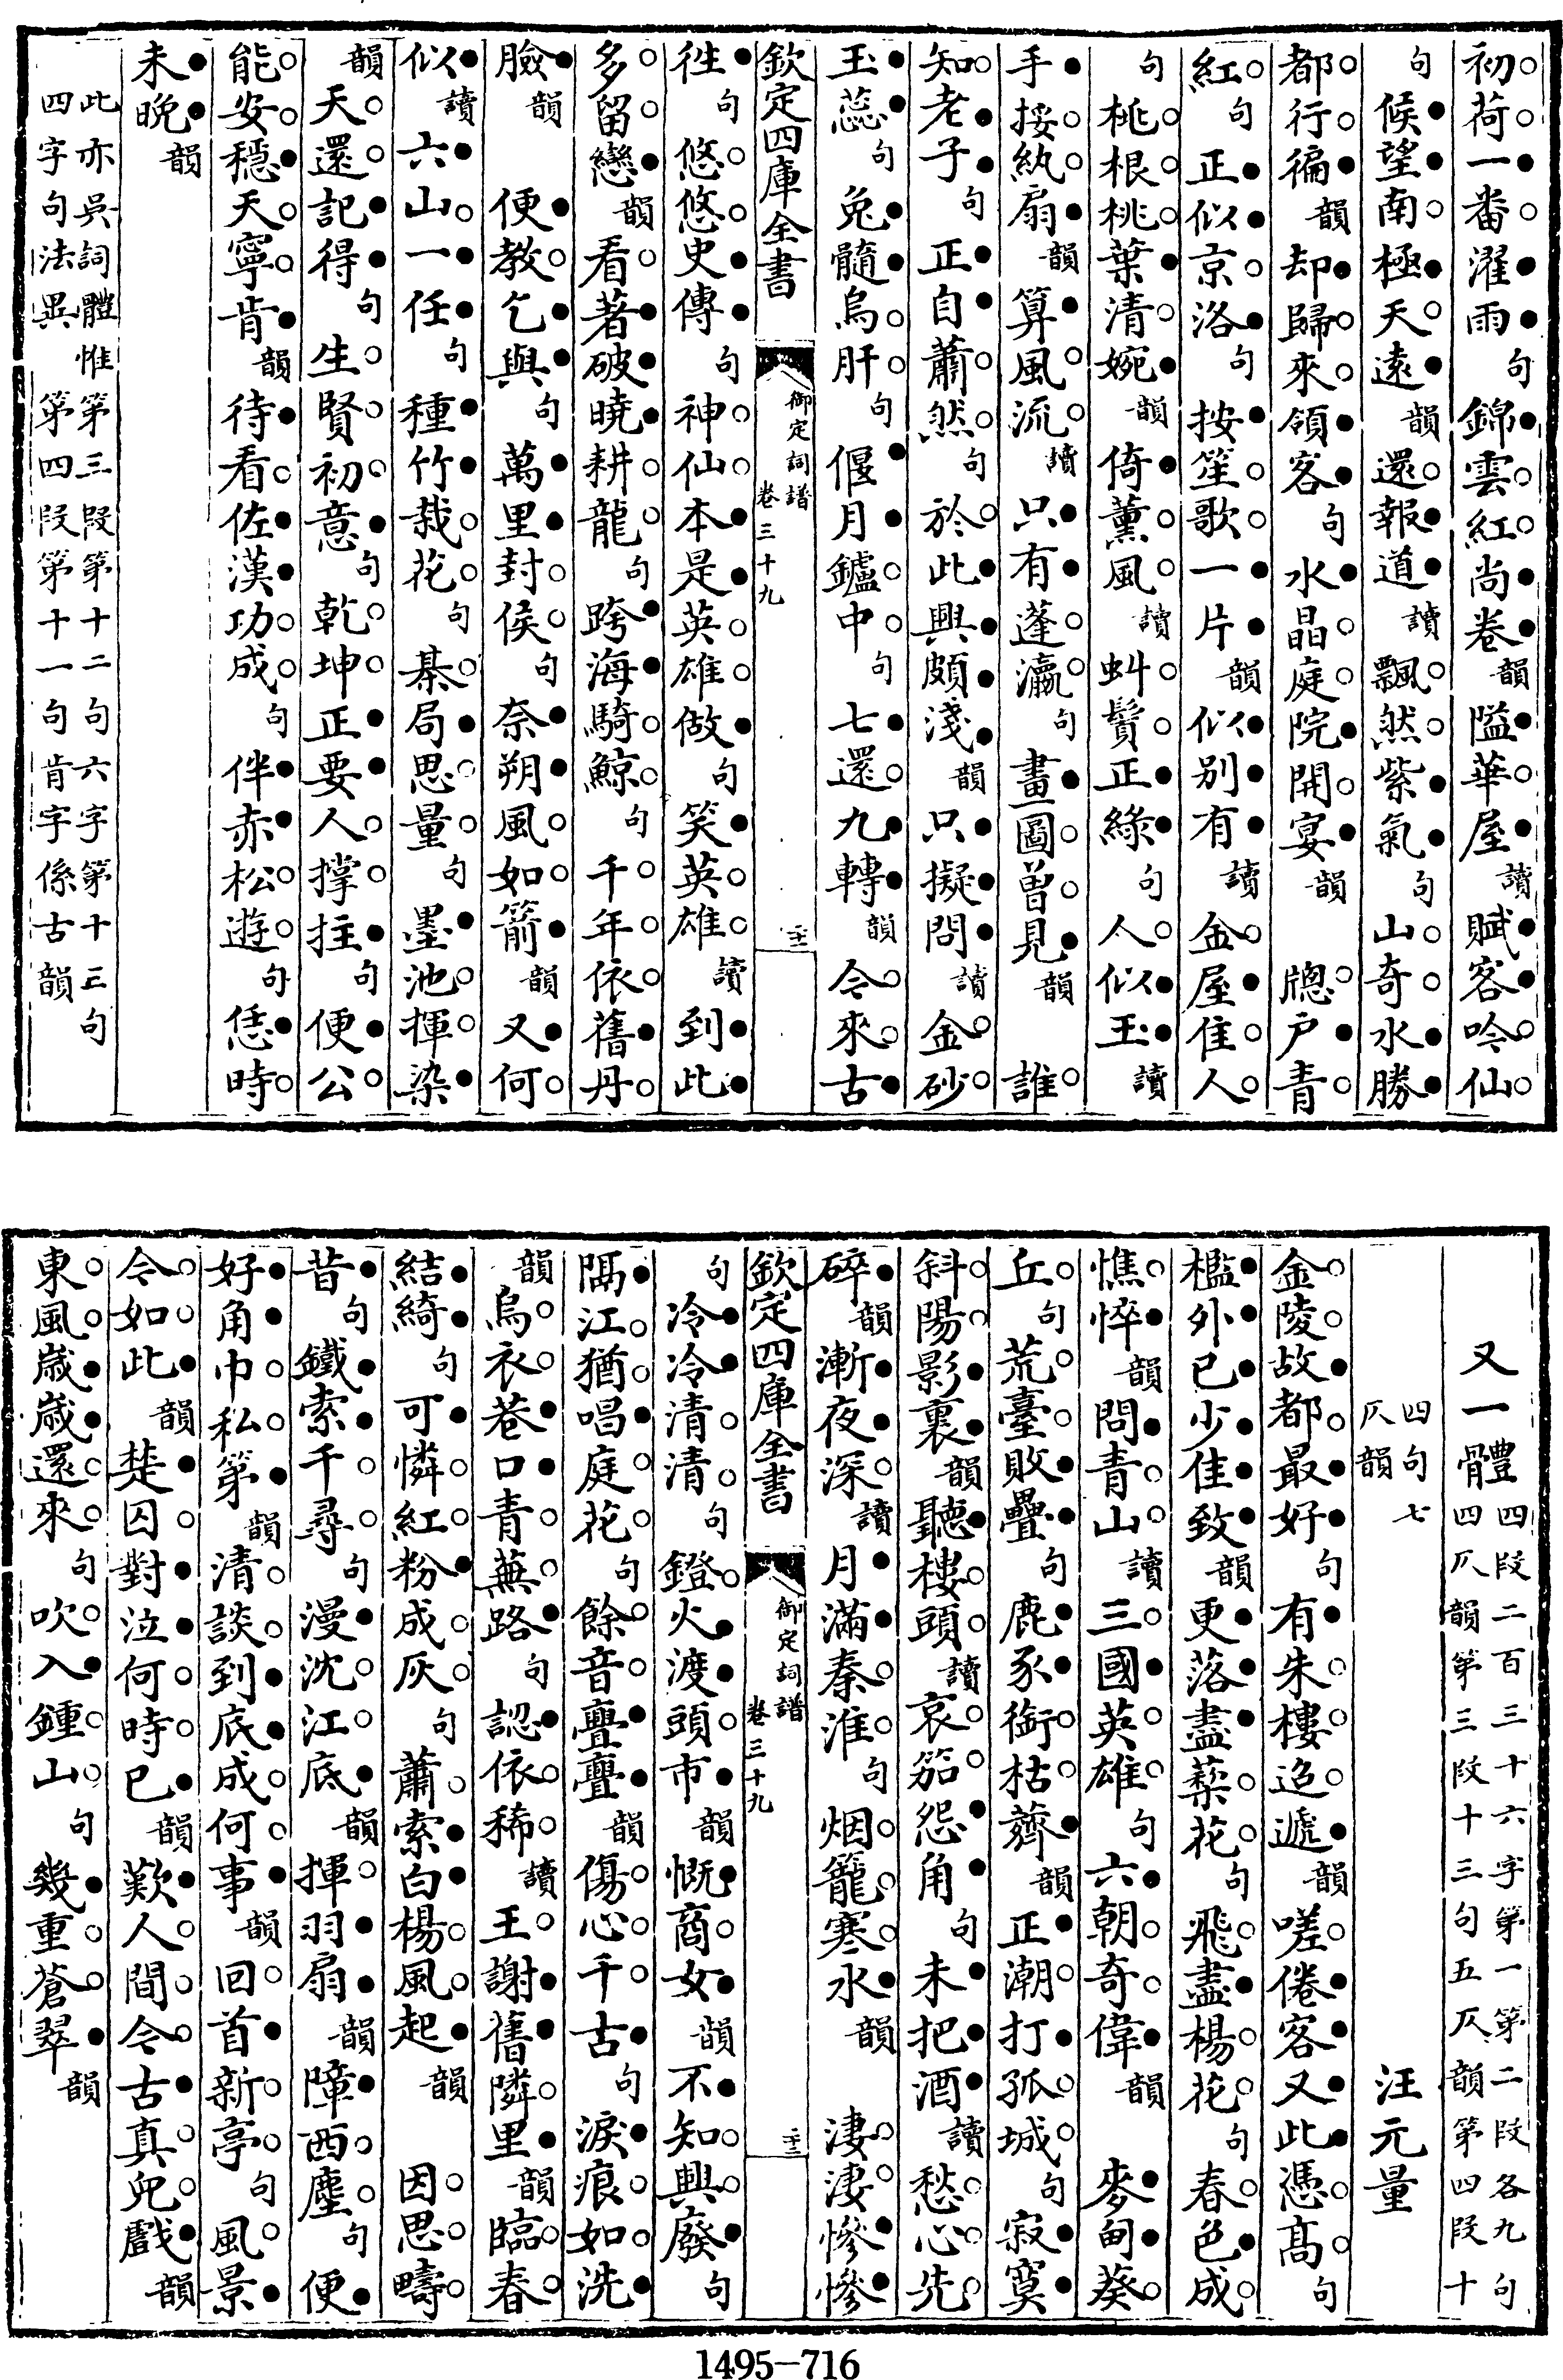 初荷一番濯雨句錦雲紅尚卷韻隘華屋讀賦客吟仙
句候望南極天遠韻還報道讀飄然紫氣句山奇水勝
都行徧韻却歸來領客句水晶庭院開宴韻　牕戶青
紅句正似京洛句按笙歌一片韻似別有讀金屋佳人
句桃根桃葉清婉韻倚薰風讀虯鬢正綠句人似玉讀
手挼紈扇韻算風流讀只有蓬瀛句畫圖曾見韻　誰
知老子句正自蕭然句於此興頗淺韻只擬問讀金砂
玉蕊句兔髓烏肝句偃月鑪中句七還九轉韻今來古
欽定四庫全書　御定詞譜卷三十九　二十一
徃句悠悠史傳句神仙本是英雄做句笑英雄讀到此
多留戀韻看著破曉耕龍句跨海騎鯨句千年依舊丹
臉韻　便教乞與句萬里封侯句奈朔風如箭韻又何
似讀六山一任句種竹栽花句棊局思量句墨池揮染
韻天還記得句生賢初意句乾坤正要人撑拄句便公
能安穩天寧肯韻待看佐漢功成句伴赤松遊句恁時
未晚韻
此亦吳詞體惟第三段第十二句六字第十三句
四字句法異　第四段第十一句肯字係古韻
又一體四段二百三十六字第一第二段各九句
四仄韻第三段十三句五仄韻第四段十
四句七
仄韻　汪元量
金陵故都最好句有朱樓迢遞韻嗟倦客又此憑高句
檻外已少佳致韻更落盡棃花句飛盡楊花句春色成
憔悴韻問青山讀三國英雄句六朝奇偉韻　麥甸葵
丘句荒臺敗壘句鹿豕銜枯薺韻正潮打孤城句寂寞
斜陽影裏韻聽樓頭讀哀笳怨角句未把酒讀愁心先
碎韻漸夜深讀月滿秦淮句烟籠寒水韻　淒淒慘慘
欽定四庫全書　御定詞譜卷三十九　二十二
句冷冷清清句鐙火渡頭市韻慨商女韻不知興廢句
隔江猶唱庭花句餘音亹亹韻傷心千古句淚痕如洗
韻烏衣巷口青蕪路句認依稀讀王謝舊隣里韻臨春
結綺句可憐紅粉成灰句蕭索白楊風起韻　因思疇
昔句鐵索千尋句漫沈江底韻揮羽扇韻障西塵句便
好角巾私第韻清談到底成何事韻回首新亭句風景
今如此韻楚囚對泣何時已韻歎人間今古真兒戲韻
東風歲歲還來句吹入鍾山句幾重蒼翠韻
1495-716